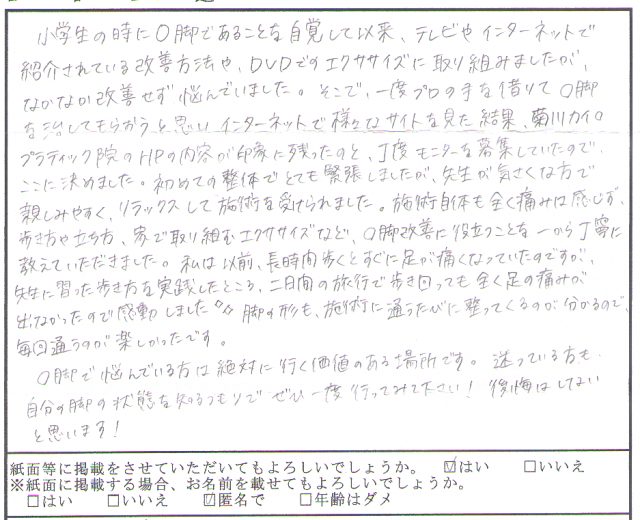 小学生の時にO脚であることを自覚して以来、テレビやインターネットで
紹介されている改善方法や、DVDでのエクササイズに取り組みましたが、
なかなか改善せず悩んでいました。そこで、一度プロの手を借りてO脚
を治してもらおうと思いインターネットで様々なサイトを見た結果、菊川カイロ
プラティック院のHPの内容が印象に残ったのと、丁度モニターを募集していたので、
ここに決めました。初めての整体でとても緊張しましたが、先生が気さくな方で
親しみやすく、リラックスして施術を受けられました。施術自体も全く痛みは感じず、
歩き方や立ち方、家で取り組むエクササイズなど、O脚改善に役立つことを一から丁寧に
教えていただきました。私は以前、長時間歩くとすぐに足が痛くなっていたのですが、
先生に習った歩き方を実践したところ、二日間の旅行で歩き回っても全く足の痛みが
出なかったので感動しました!! 脚の形も、施術に通うたびに整ってくるのが分かるので、
毎回通うのが楽しかったです。
O脚で悩んでいる方は絶対に行く価値のある場所です。迷っている方も、
自分の脚の状態を知るつもりでぜひ一度行ってみて下さい！後悔はしない
と思います！
紙面等に掲載をさせていただいてもよろしいでしょうか。 ☑はい □いいえ
※紙面に掲載する場合、お名前を載せてもよろしいでしょうか。
□はい □いいえ ☑匿名で □年齢はダメ